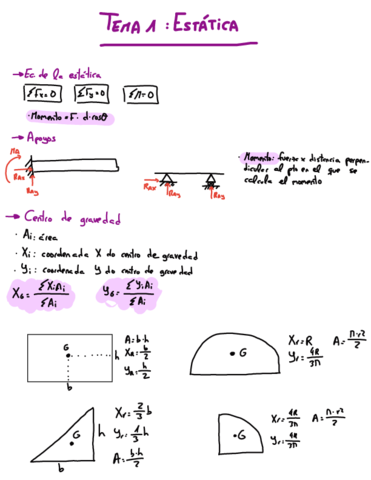 TEMA 1 : ESTÁTICA
→ Ec. de la estática
ΣFx=0 ΣFy=0 ΣM=0
· Momento = F · d · cosθ
→ Apoyos
MA
RAx
RAy
RAx
RAy
RAy
· Momento: fuerza x distancia perpen-
dicular al pto en el que se
calcula el momento
→ Centro de gravedad
· Ai: área
· Xi: coordenada X do centro de gravedad
· Yi: coordenada Y do centro de gravedad
XG = ΣXiAi / ΣAi YG = ΣYiAi / ΣAi
G
h
b
A = b·h
XR = b/2
YR = h/2
G
Xr = R A = π·r²/2
Yr = 4R/3π
G
h
b
Xr = 2/3 b
Yr = 1/3 h
A = b·h/2
G
Xr = 4R/3π A = π·r²/2
Yr = 4R/3π